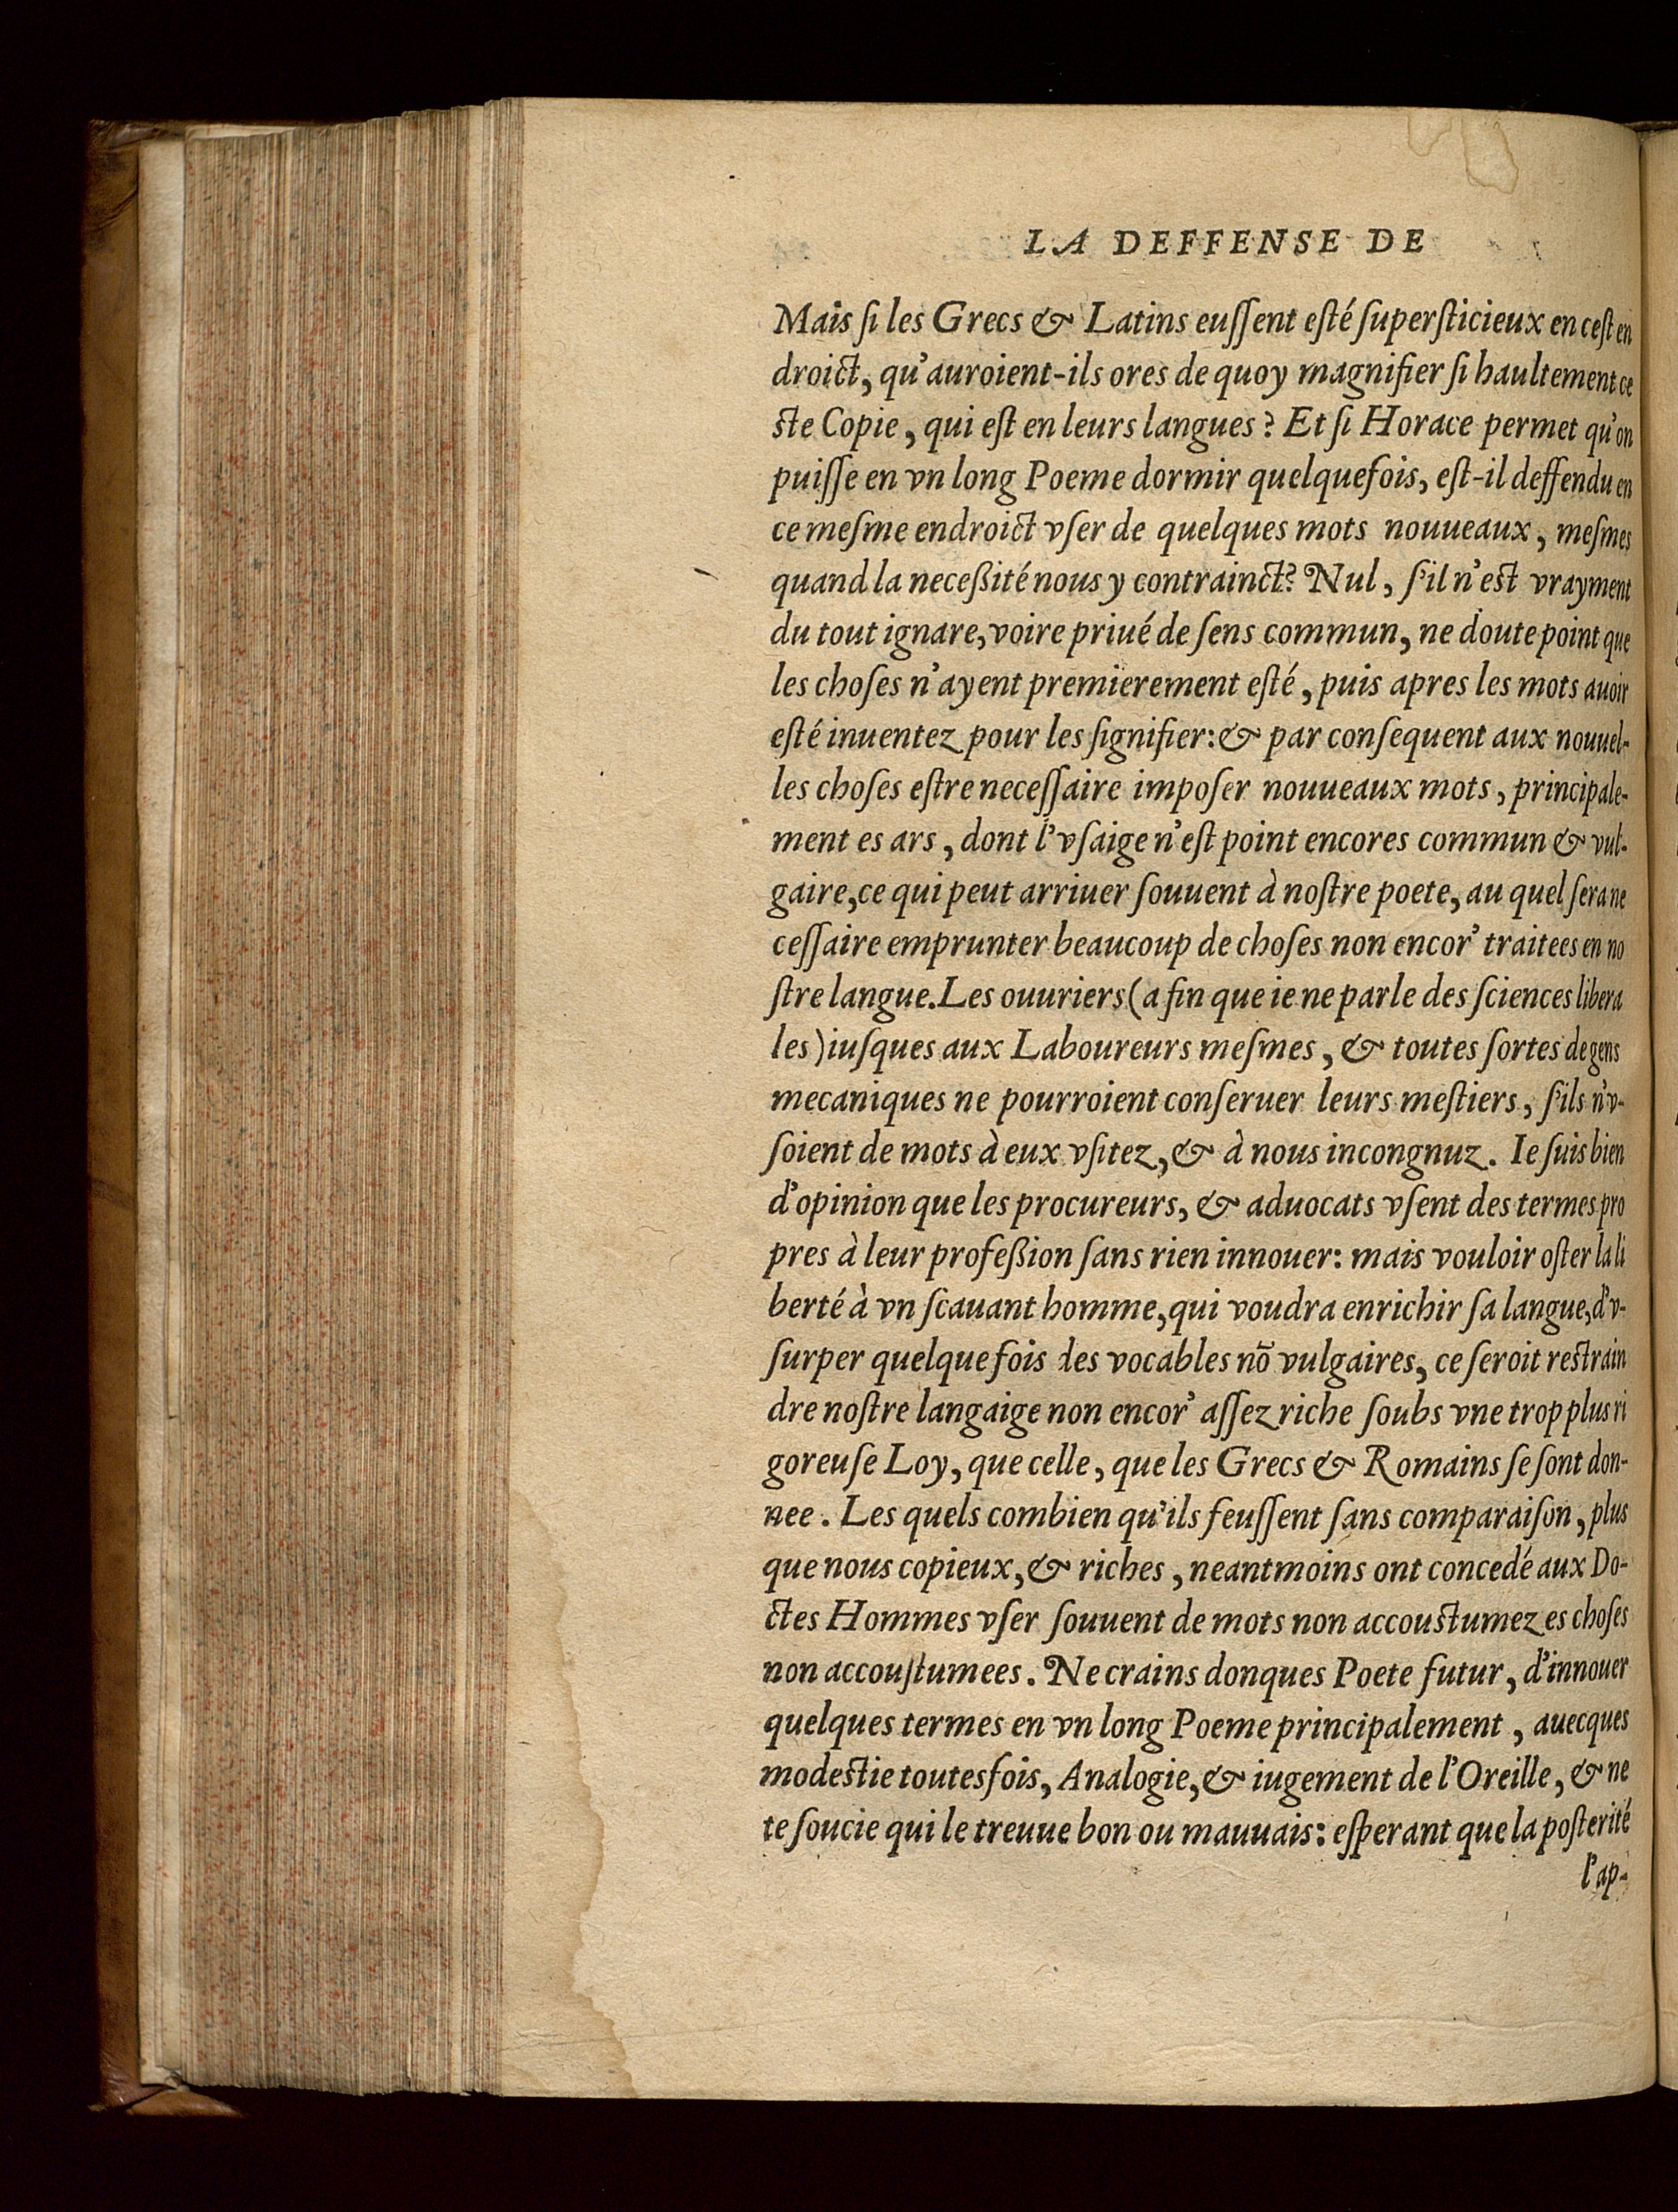 LA DEFFENSE DE
Mais ſi les Grecs & Latins euſſent eſté ſuperſticieux en ceſt en
droict, qu'auroient-ils ores de quoy magnifier ſi haultement ce
ste Copie, qui eſt en leurs langues? Et ſi Horace permet qu'on
puiſſe en vn long Poeme dormir quelquefois, eſt-il deffendu en
ce meſme endroict vſer de quelques mots nouueaux, meſmes
quand la neceßité nous y contrainct? Nul, ſ'il n'est vrayment
du tout ignare, voire priué de ſens commun, ne doute point que
les choſes n'ayent premierement eſté, puis apres les mots auoir
eſté inuentez pour les ſignifier: & par conſequent aux nouuel-
les choſes eſtre neceſſaire impoſer nouueaux mots, principale-
ment es ars, dont l'vſaige n'eſt point encores commun & vul-
gaire, ce qui peut arriuer ſouuent à noſtre poete, au quel ſera ne
ceſſaire emprunter beaucoup de choſes non encor' traitees en no
ſtre langue. Les ouuriers (a fin que ie ne parle des ſciences libera
les) iuſques aux Laboureurs meſmes, & toutes ſortes de gens
mecaniques ne pourroient conſeruer leurs meſtiers, ſ'ils n'v-
ſoient de mots à eux vſitez, & à nous incongnuz. Ie ſuis bien
d'opinion que les procureurs, & aduocats vſent des termes pro
pres à leur profeßion ſans rien innouer: mais vouloir oſter la li
berté à vn ſcauant homme, qui voudra enrichir ſa langue, d'v-
ſurper quelquefois des vocables nõ vulgaires, ce ſeroit restrain
dre noſtre langaige non encor' aſſez riche ſoubs vne trop plus ri
goreuſe Loy, que celle, que les Grecs & Romains ſe ſont don-
nee. Les quels combien qu'ils feuſſent ſans comparaiſon, plus
que nous copieux, & riches, neantmoins ont concedé aux Do-
ctes Hommes vſer ſouuent de mots non accoustumez es choſes
non accouſtumees. Ne crains donques Poete futur, d'innouer
quelques termes en vn long Poeme principalement, auecques
modestie toutesfois, Analogie, & iugement de l'Oreille, & ne
te ſoucie qui le treuue bon ou mauuais: eſperant que la poſterité
l'ap-